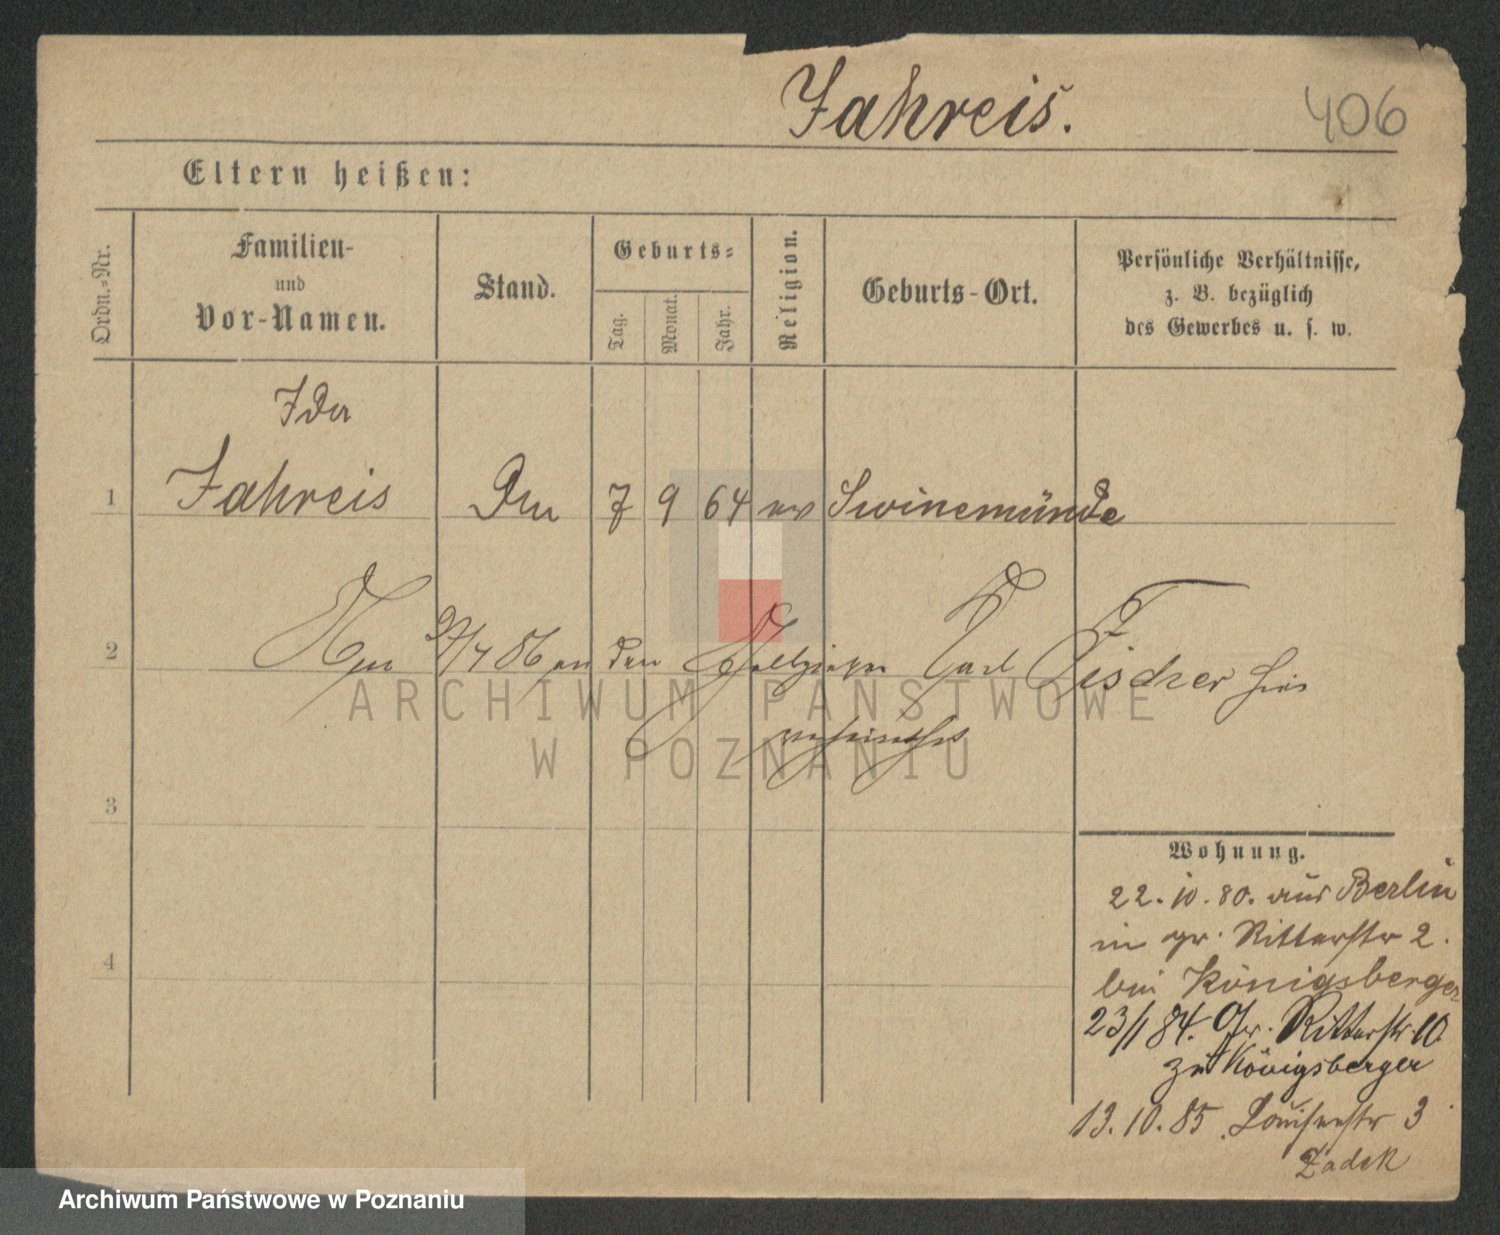 Jahreis.
406
Eltern heißen:
Ordn.-Nr.
Familien-
und
Vor-Namen.
Stand.
Geburts-
Tag.
Monat.
Jahr.
Religion.
Geburts-Ort.
Persönliche Verhältnisse,
z. B. bezüglich
des Gewerbes u. s. w.
Ida
1 Jahreis 7 9 64 ev Swinemünde
2 86 an den Carl Fischer hier
verheirathet
3
4
Wohnung.
22.10.80. aus Berlin
in gr. Ritterstr 2.
bei Königsberger
23/1 84. Gr. Ritterstr 10
zu Königsberger
13.10.85 Louisenstr 3
Zadek
ARCHIWUM PAŃSTWOWE
W POZNANIU
Archiwum Państwowe w Poznaniu